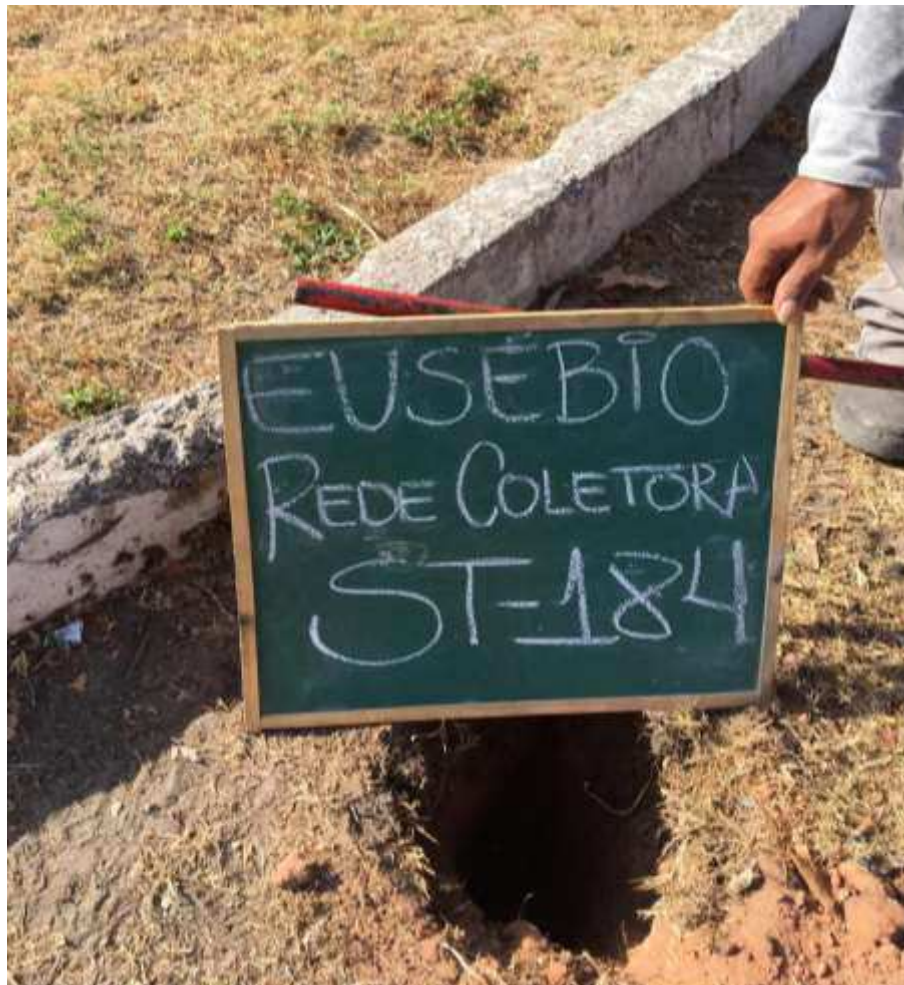 EUSÉBIO
REDE COLETORA
ST-184